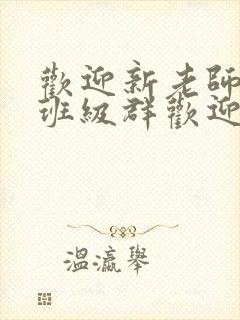 歡迎新老師
班級群歡迎
溫瀛舉